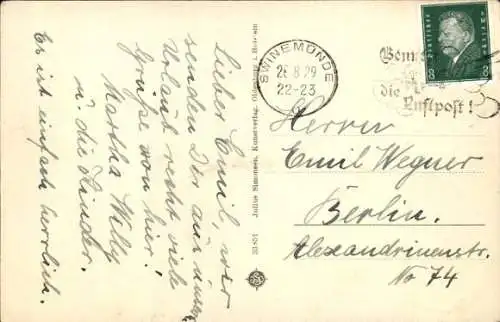 Lieber Emil, wir
senden Dir aus dem
Urlaub recht viele
Grüße von hier!
Martha Willy
u. die Kinder.
Es ist einfach herrlich.
Julius Simonsen, Kunstverlag, Oldenburg i. Holstein
SWINEMÜNDE
28.8.29
22-23
die
Luftpost!
8 8
Herrn
Emil Wegner
Berlin.
Alexandrinenstr.
No 74